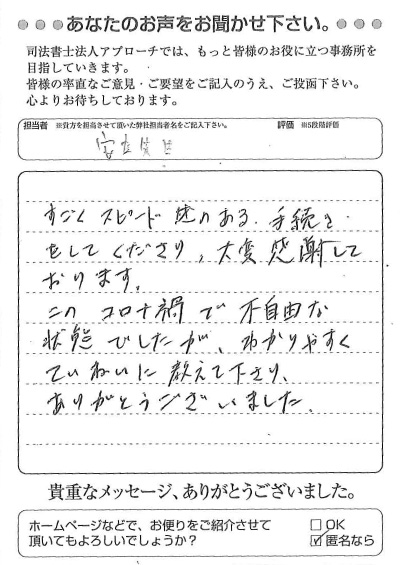 ●●●●あなたのお声をお聞かせ下さい。●●●●
司法書士法人アプローチでは、もっと皆様のお役に立つ事務所を
目指していきます。
皆様の率直なご意見・ご要望をご記入のうえ、ご投函下さい。
心よりお待ちしております。
担当者 ※貴方を担当させて頂いた弊社担当者名をご記入下さい。 評価 ※5段階評価
すごくスピード感のある、手続き
をしてくださり、大変感謝して
おります。
このコロナ禍で不自由な
状態でしたが、わかりやすく
ていねいに教えて下さり、
ありがとうございました。
貴重なメッセージ、ありがとうございました。
ホームページなどで、お便りをご紹介させて □OK
頂いてもよろしいでしょうか？ ☑匿名なら